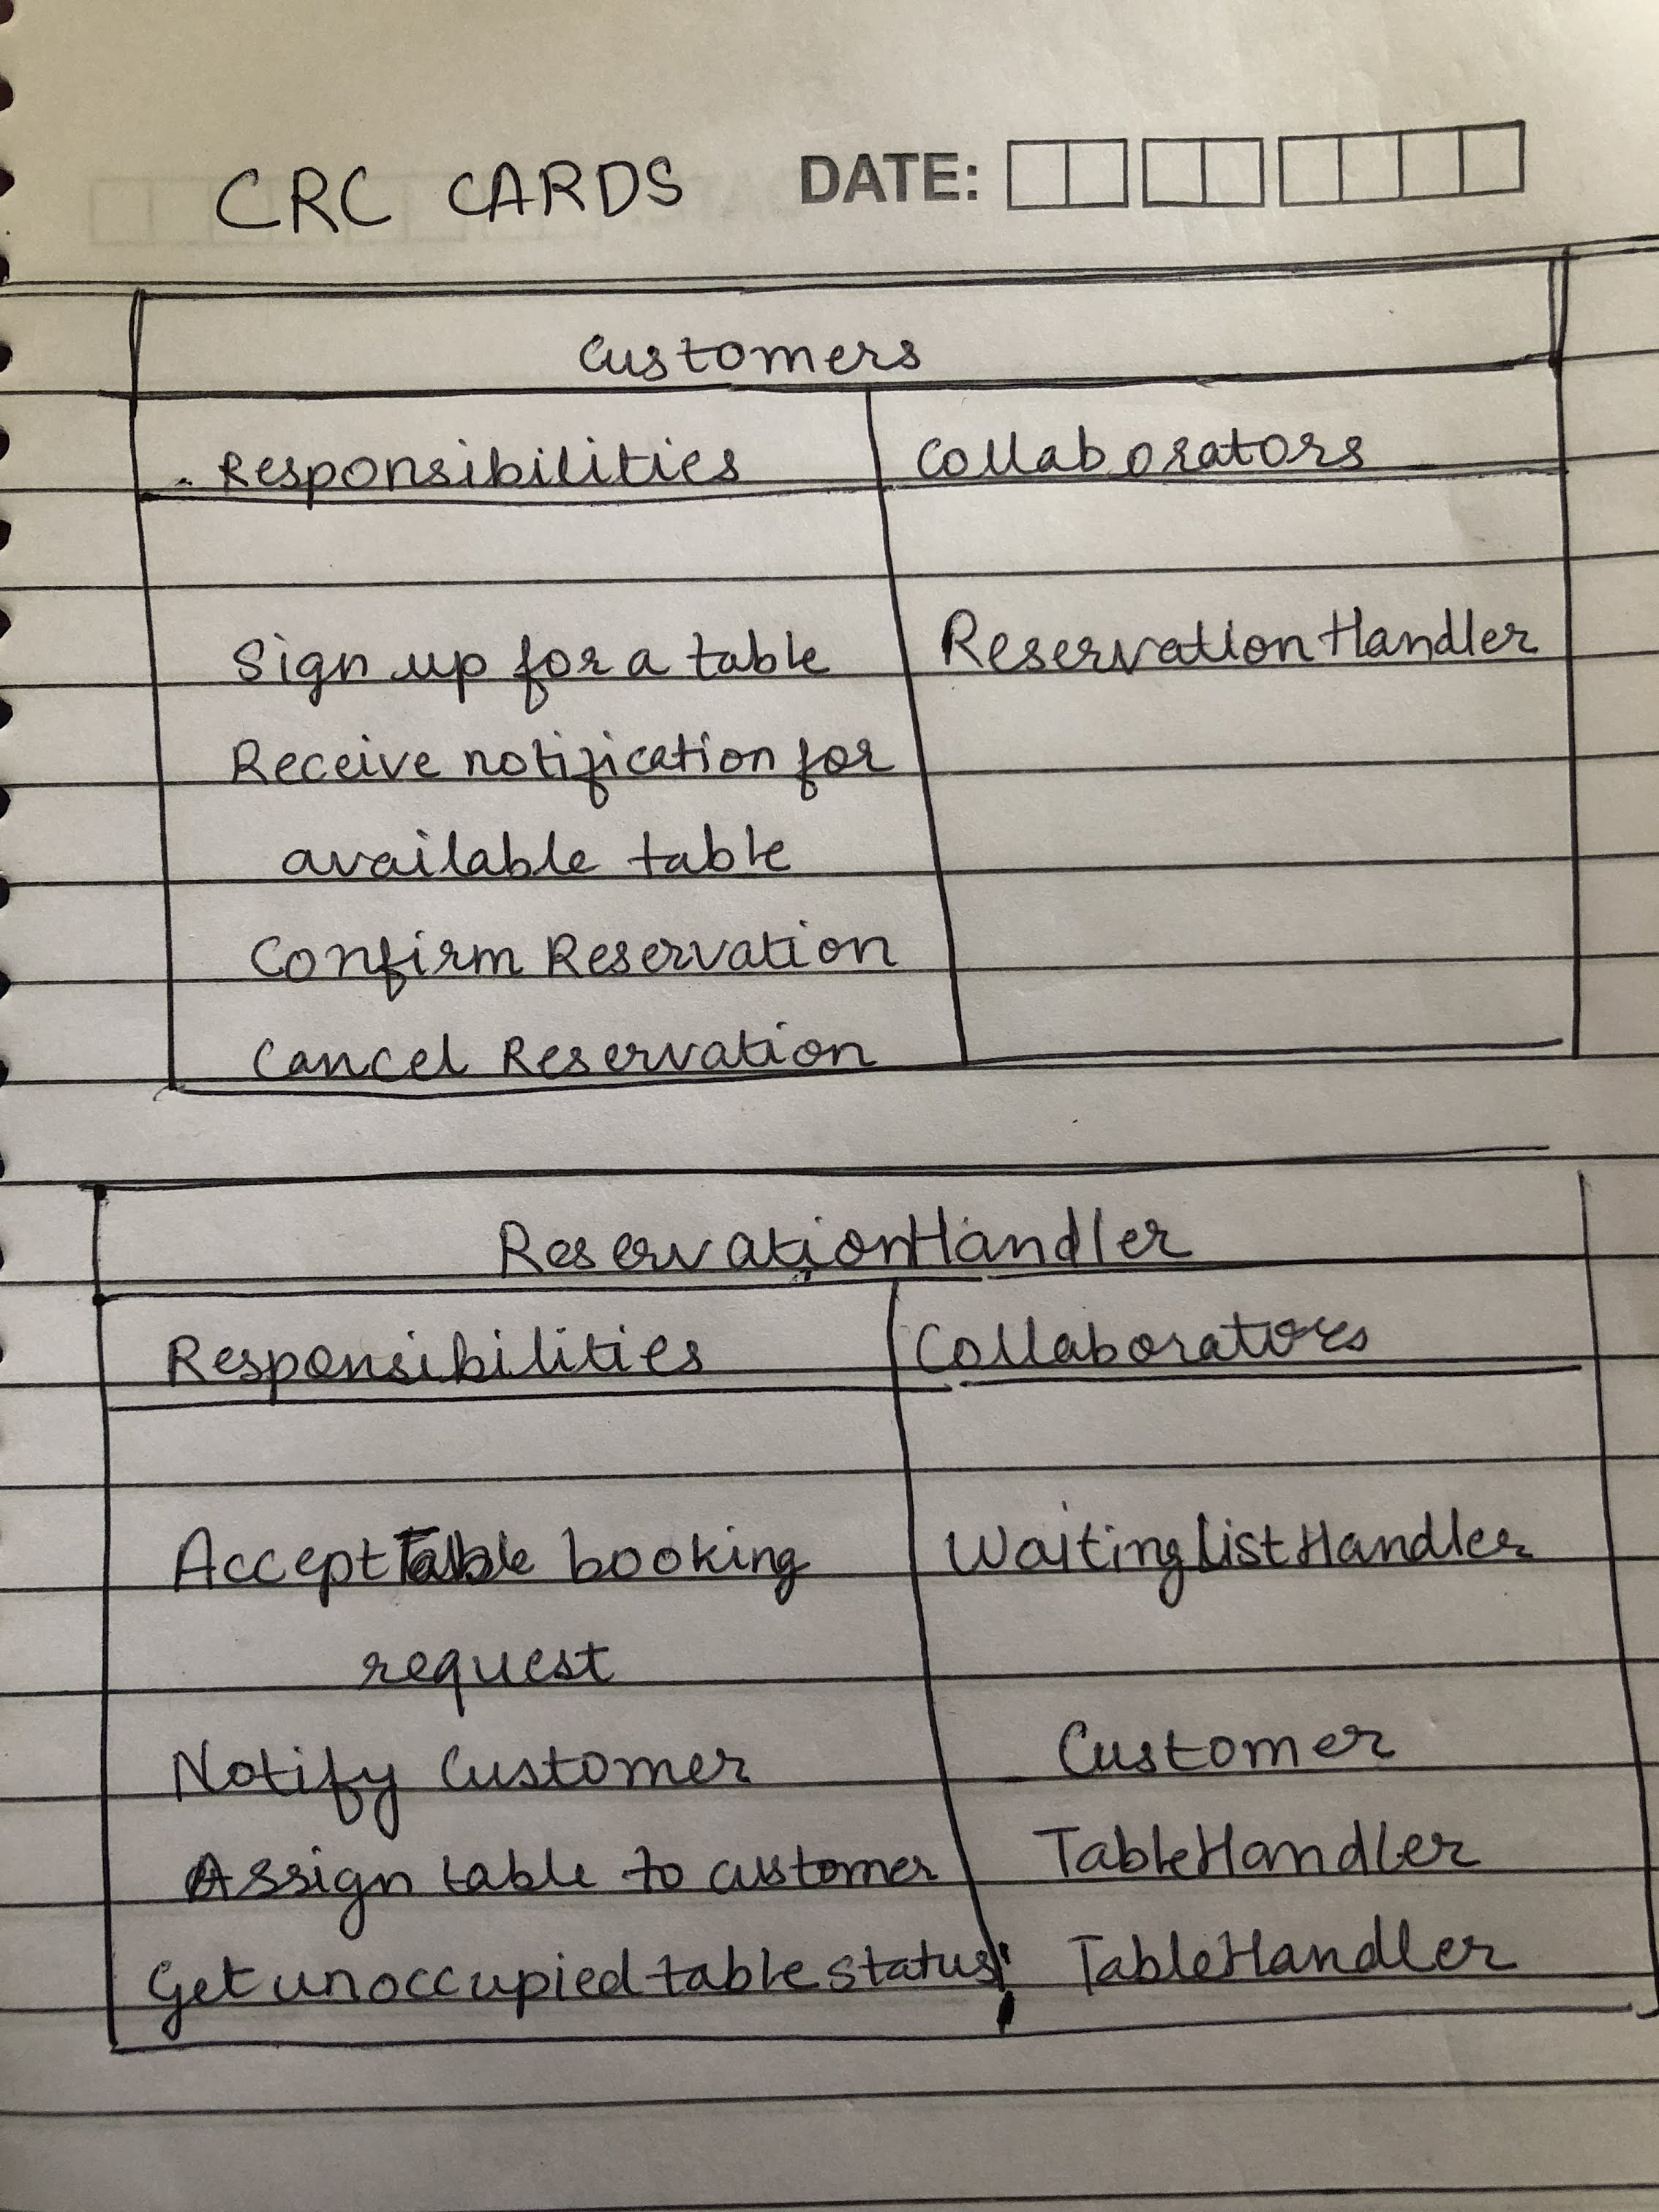 CRC CARDS DATE:
Customers
Responsibilities Collaborators
Sign up for a table ReservationHandler
Receive notification for
available table
Confirm Reservation
Cancel Reservation
ReservationHandler
Responsibilities Collaborators
Accept Table booking WaitingListHandler
request
Notify Customer Customer
Assign table to customer TableHandler
Get unoccupied table status TableHandler